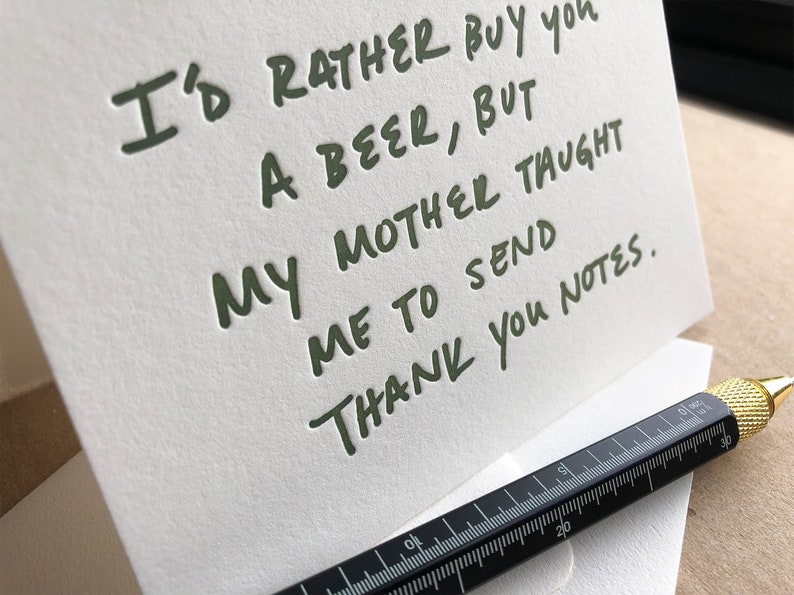 I'D RATHER BUY you
A BEER, BUT
MY MOTHER TAUGHT
ME TO SEND
THANK you NOTES.
0
5
10
20
30